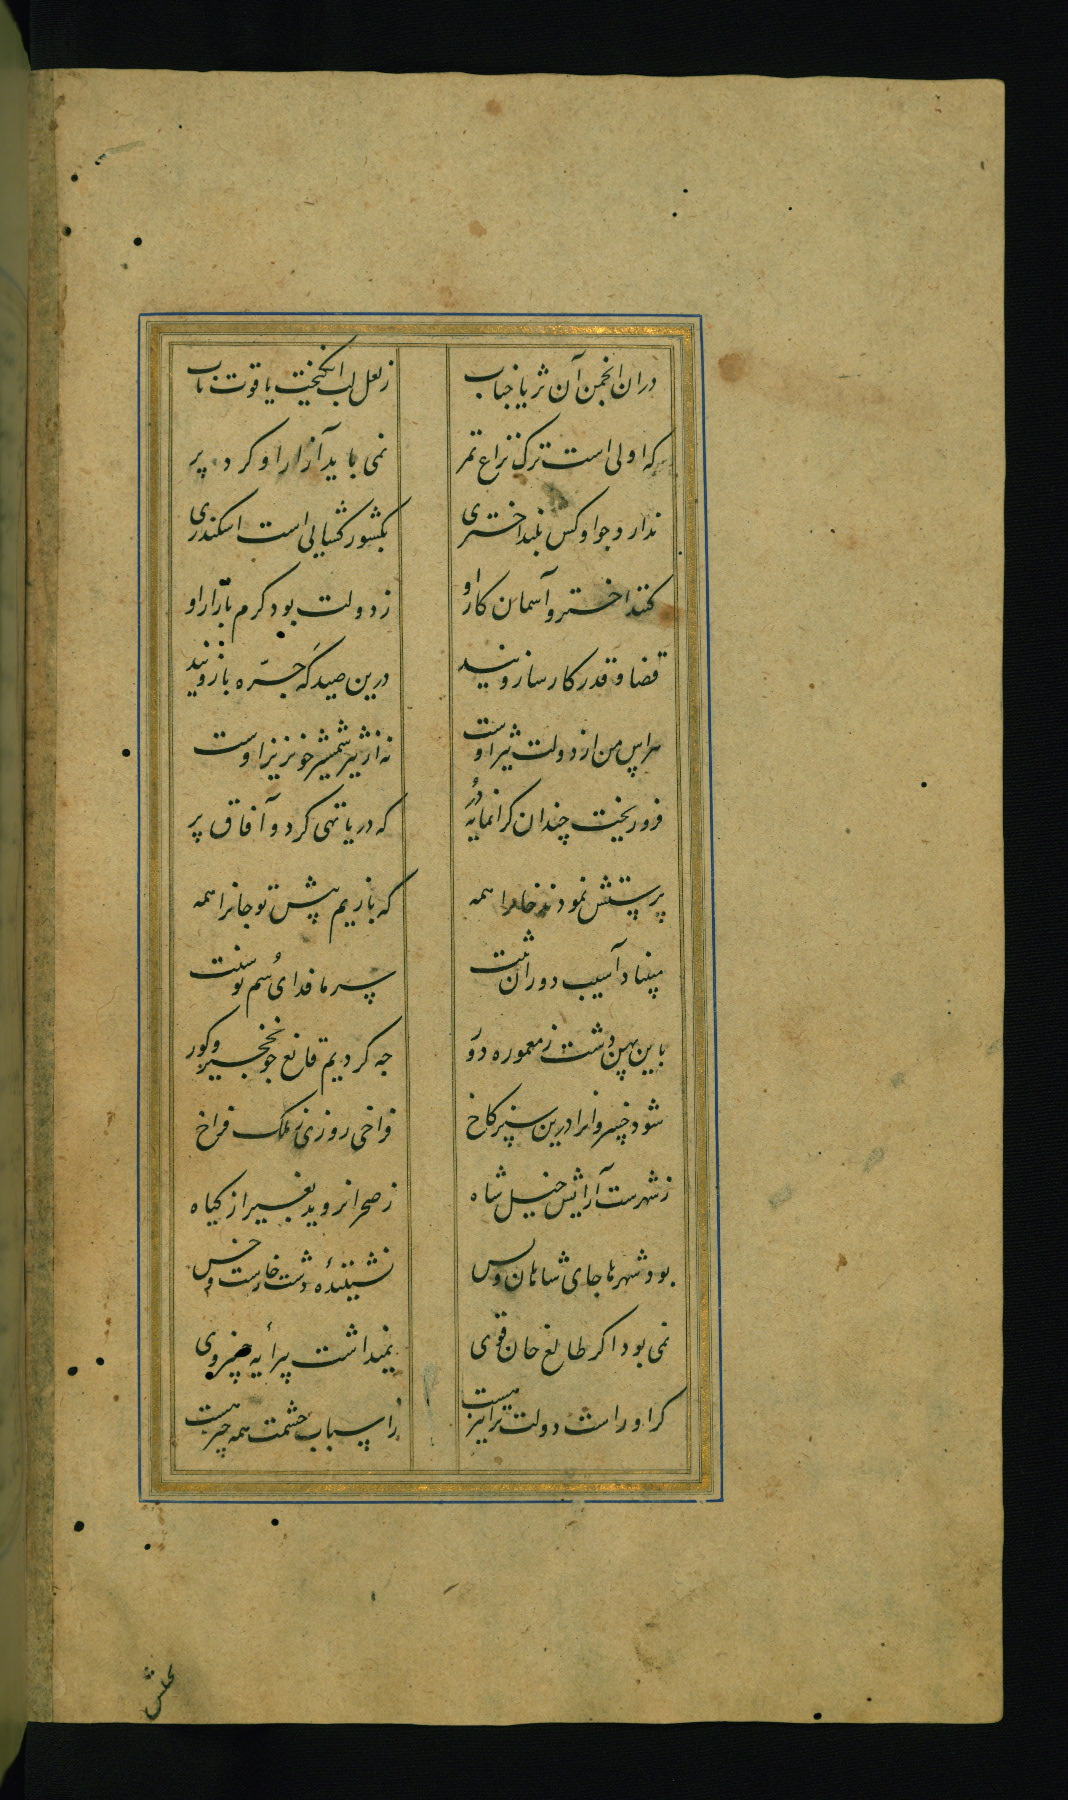 دران انجمن آن ثریا جناب زلعل لب انکیخت یاقوت ناب
که اولی است ترک نزاع تمر نمی باید آزار او کرد پر
ندارد چو او کس بلند اختری بکشور کشایی است اسکندری
کنند اختر و آسمان کار او ز دولت بود کرم بازار او
قضا و قدر کار ساز ویند درین صیدکه جره باز ویند
هراس من از دولت تیز اوست نه از تیر شمشیر خونریز اوست
فرو ریخت چندان کرانمایه در که دریا تهی کرد و آفاق پر
پرستش نمودند خانرا همه که بازیم پیش تو جانرا همه
مبیناد آسیب دوران تنت سر ما فدای سم توسنت
باین پهن دشت ز معموره دور چه کردیم قانع چو نخجیر و کور
شود خسروانرا درین سبز کاخ فراخی روزی ز ملک فراخ
ز شهرست آرایش خیل شاه ز صحرا نروید بغیر از کیاه
بود شهرها جای شاهان و بس نشیننده دشت خارست و خس
نمی بود اکر طالع خان قوی نمیداشت پیرایه خسروی
کر او راست دولت ترا نیز هست ز اسباب حشمت همه چیز هست